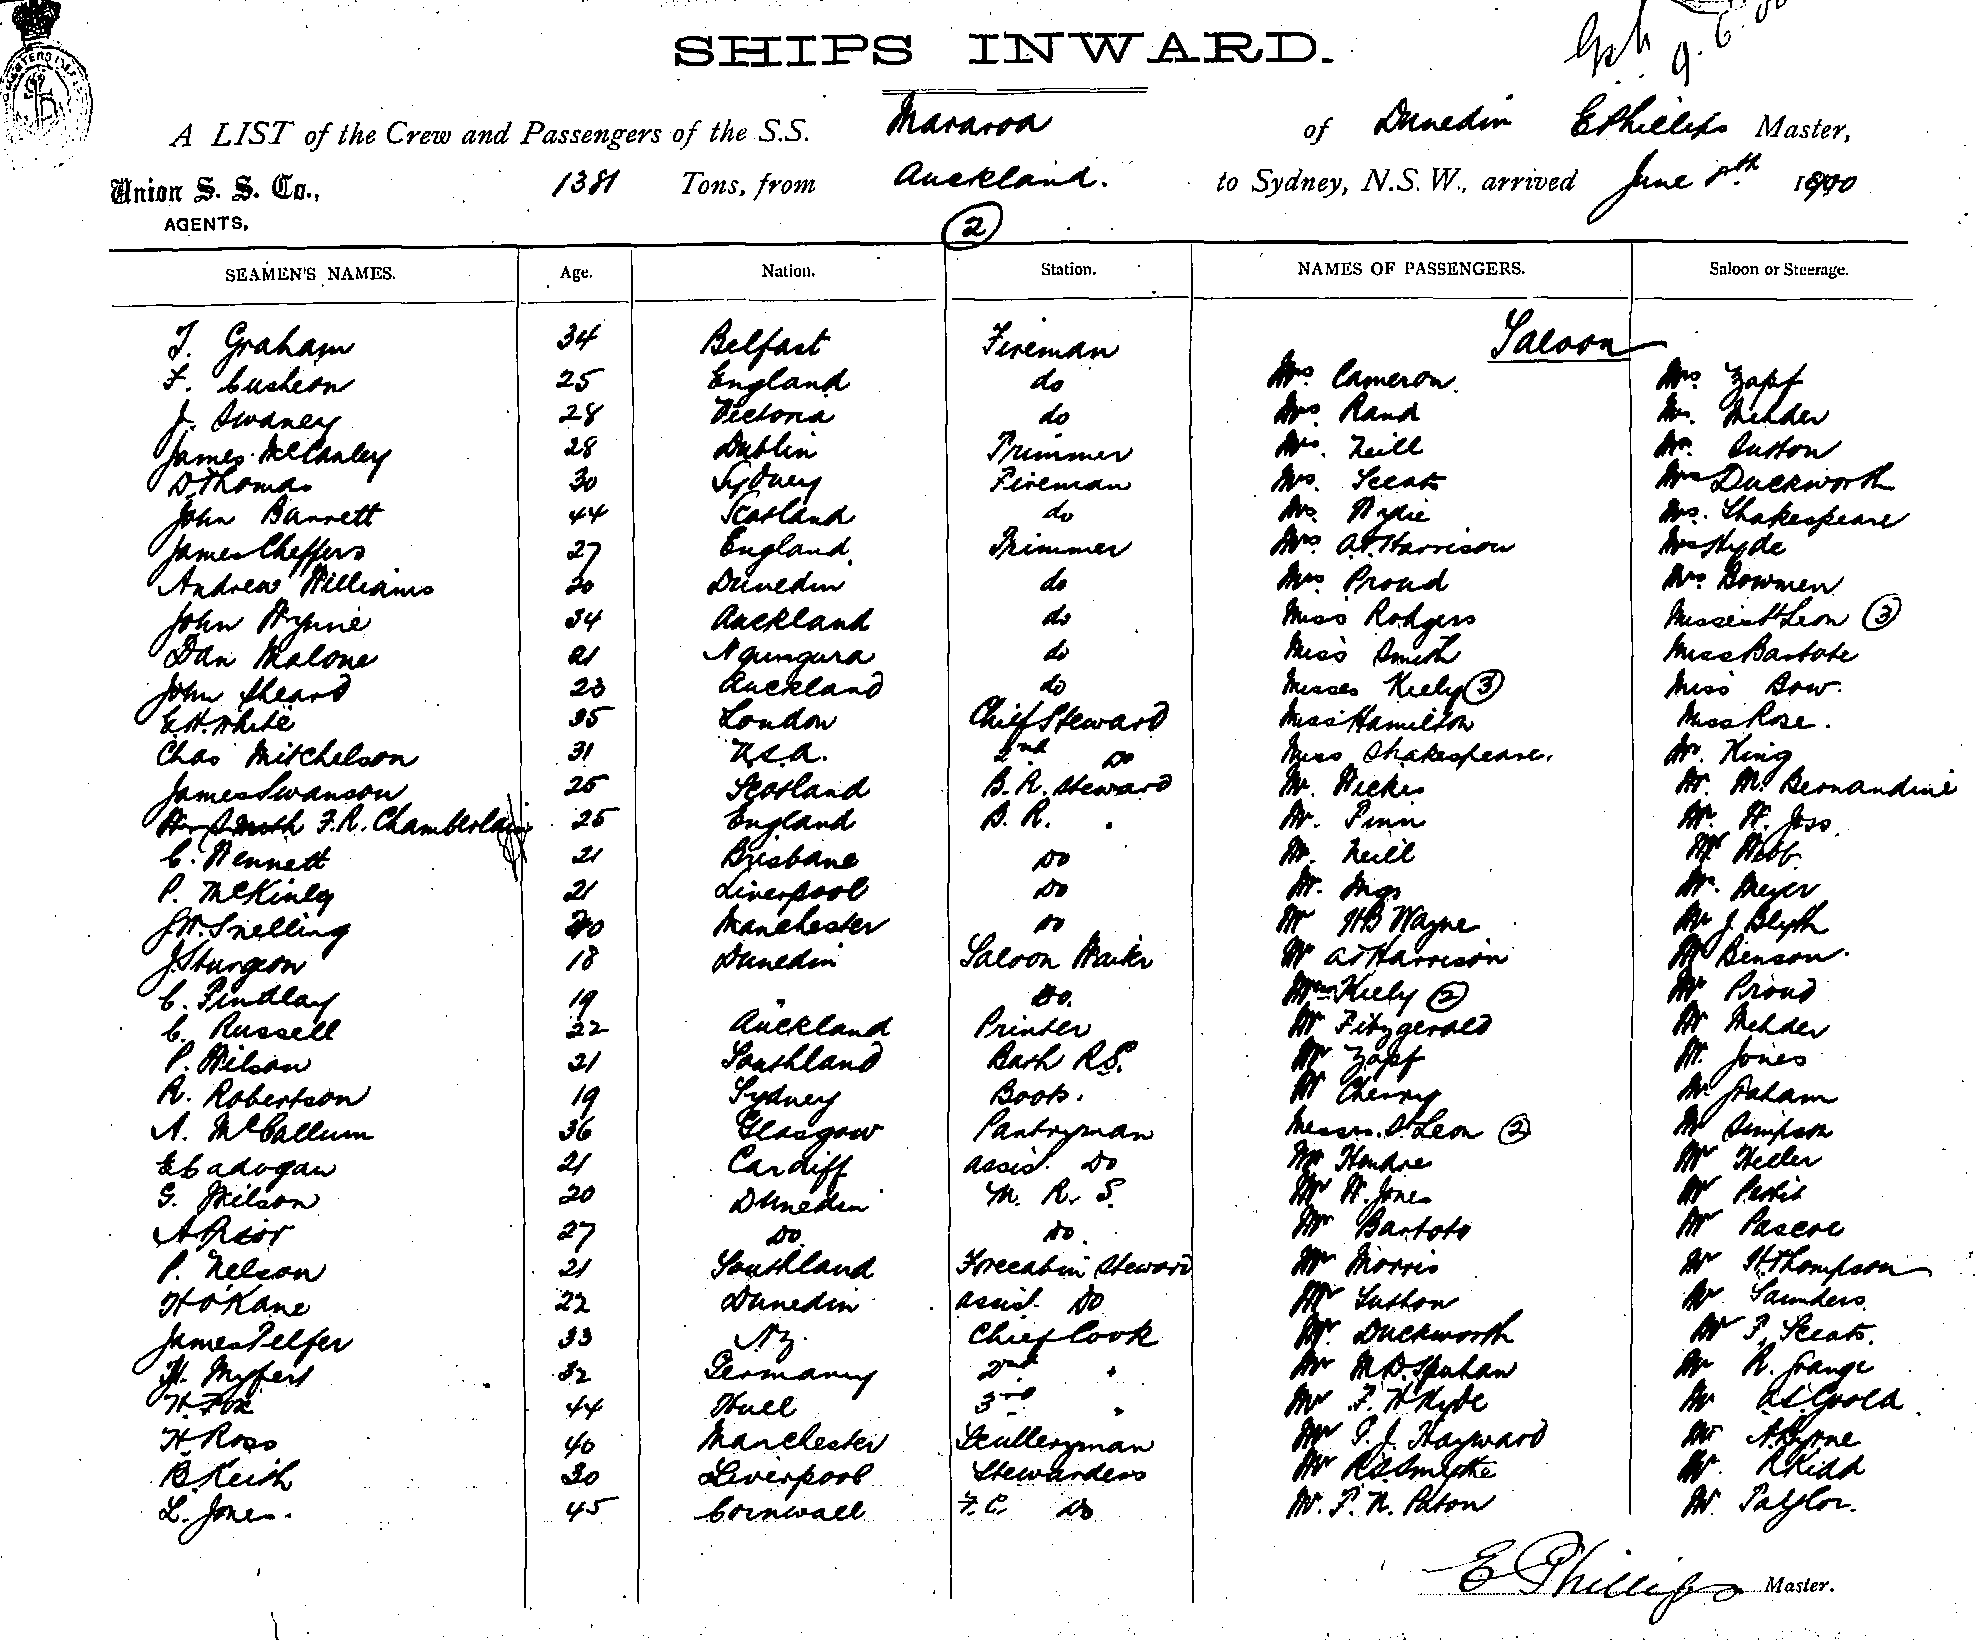 SHIPS INWARD.
A LIST of the Crew and Passengers of the S.S. Mararoa of Dunedin E Phillips Master,
Union S. S. Co., 1381 Tons, from Auckland. to Sydney, N.S.W., arrived June 8th 1900
AGENTS,
2
SEAMEN'S NAMES. Age. Nation. Station. NAMES OF PASSENGERS. Saloon or Steerage.
Saloon
T. Graham 34 Belfast Fireman
F. Cusheon 25 England do Mrs. Cameron. Mrs Zapf
J. Swaney 28 Victoria do Mrs Rand Mrs. Mehder
James McCanley 28 Dublin Trimmer Mrs. Neill Mrs. Sutton
D Thomas 30 Sydney Fireman Mrs. Seeats Mrs Duckworth
John Barrett 44 Scotland do Mrs. Wylie Mrs. Shakespeare
James Cheffers 27 England. Trimmer Mrs A.T. Harrison Mrs Hyde
Andrew Williams 20 Dunedin do Mrs Proud Mrs Bowmen
John Wynne 34 Auckland do Miss Rodgers Misses Leon 3
Dan Malone 21 Ngunguru do Miss Smith Miss Bartote
John Sheard 23 Auckland do Misses Kiely 3 Miss Bow.
E.H. White 35 London Chief Steward Miss Hamilton Miss Rose.
Chas Mitchelson 31 U.S.A. 2nd Do Miss Shakespeare. Mr. King
James Swanson 25 Scotland B.R. Steward Mr. Wickes Mr. M. Bernandine
F.R. Chamberlain 25 England B. R. " Mr. Pinn Mr. H. Joss.
C. Bennett 21 Brisbane Do Mr. Neill Mr Webb.
P. McKinley 21 Liverpool Do Mr. Ings Mr. Meyer
J.W. Snelling 20 Manchester Do Mr HB Wayne Mr J. Blyth
J Sturgeon 18 Dunedin Saloon Waiter Mr A T Harrison Mr Benson.
C. Findlay 19 " Do. Kiely 2 Mr Proud
C. Russell 22 Auckland Printer Mr Fitzgerald Mr Mehder
P. Wilson 21 Southland Bath R.S. Mr Zapf Mr. Jones
R. Robertson 19 Sydney Boots. Mr Cherry Mr. Graham
A. McCallum 36 Glasgow Pantryman Messrs. Leon 2 Mr Simpson
E Cadogan 21 Cardiff assist. Do Mr Hendre Mr Heller
G. Wilson 20 Dunedin M. R. S. Mr H. Jones Mr Pettit
A Prior 27 Do. Do. Mr Bartote Mr Pascoe
P. Nelson 21 Southland Forecabin Steward Mr Morris Mr H Thompson
H O'Kane 22 Dunedin assist. Do Mr Sutton Mr Saunders
James Telfer 33 N.Z. Chief Cook Mr. Duckworth Mr P. Seeats.
H. Myfert 32 Germany 2nd " Mr M.D. Spuhan Mr R. Grange
H. Fox 44 Hull 3rd " Mr F. H Hyde Mr A.S. Goold
H Ross 40 Manchester Sculleryman Mr P. J. Hayward Mr A. Byrne
B. Keith 30 Liverpool Stewardess Mr R.S. Smythe Mr. R Kidd
L. Jones. 45 Cornwall F.C. Do Mr. P. N. Paton Mr Taylor.
E Phillips Master.